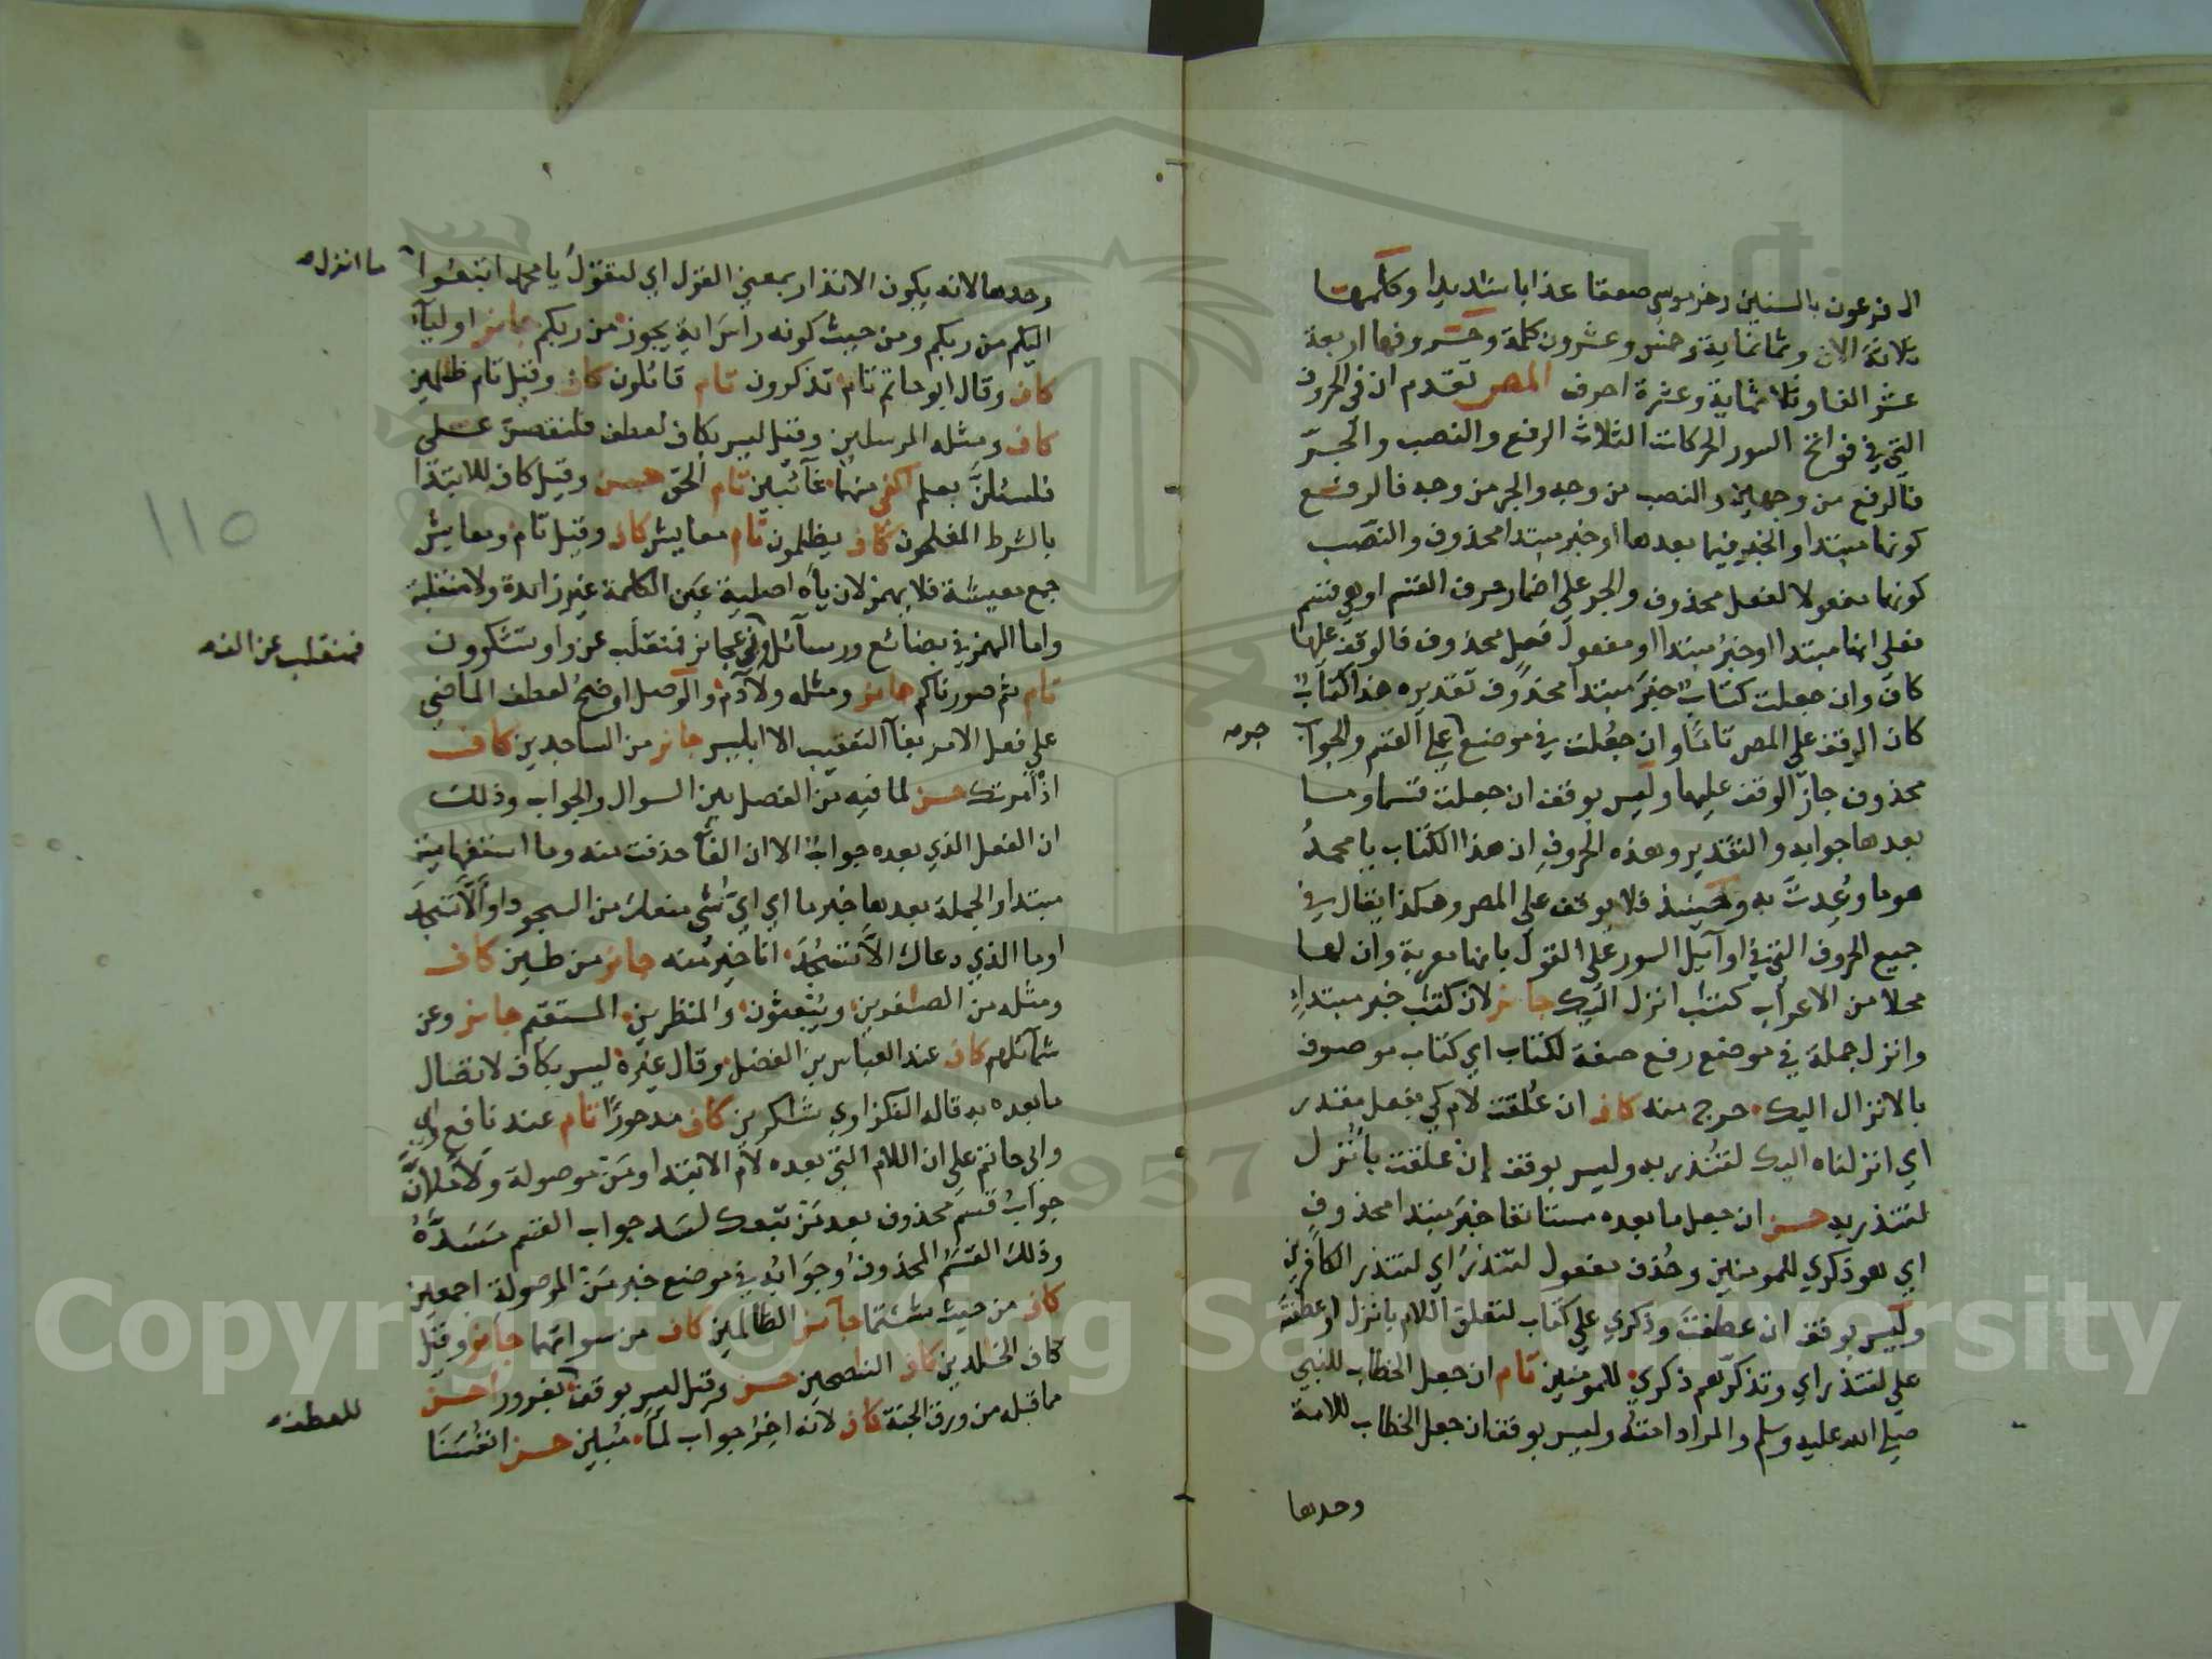 ال فرعون بالسنين وخر موسى صعقا عذابا شديدا وكلمها
ثلاثة الاف وثمانماية وخمس وعشرون كلمة وحروفها اربعة
عشر الفا وثلاثماية وعشرة احرف المص تقدم ان في الحروف
التي في فواتح السور الحركات الثلاث الرفع والنصب والجر
فالرفع من وجهين والنصب من وجه والجر من وجه فالرفع
كونها مبتدا والخبر فيما بعدها او خبر مبتدا محذوف والنصب
كونها مفعولا لفعل محذوف والجر على اضمار حرف القسم اوهي قسم
فعلى انها مبتدا او خبر مبتدا او مفعول فعل محذوف فالوقف عليها
كاف وان جعلت كتاب خبر مبتدا محذوف تقديره هذا كتاب
كان الوقف على المص تاما وان جعلت في موضع على القسم والجواب
جر
محذوف جاز الوقف عليها وليس بوقف ان جعلت قسما وما
بعدها جوابه والتقدير وهذه الحروف ان هذا الكتاب يا محمد
هو ما وعدت به وحينئذ فلا يوقف على المص وهكذا يقال في
جميع الحروف التي في اوائل السور على القول بانها معربة وان لها
محلا من الاعراب كتب انزل اليك جائز لان كتب خبر مبتداء
وانزل جملة في موضع رفع صفة لكتاب اي كتاب موصوف
بالانزال اليك حرج منه كاف ان علقت لام كي بفعل مقدر
اي انزلناه اليك لتنذر به وليس بوقف إن علقت بانزل
لتنذر به حسن ان جعل ما بعده مستانفا خبر مبتدا محذوف
اي هو ذكري للمومنين وحذف مفعول لتنذر اي لتنذر الكافرين
وليس بوقف ان عطفت وذكري على كتاب لتعلق اللام بانزل او عطفته
على لتنذر اي وتذكرهم ذكري للمومنين تام ان جعل الخطاب للنبي
صلى الله عليه وسلم والمراد امته وليس بوقف ان جعل الخطاب للامة
وحدها
وحدها لانه يكون الانذار بمعنى القول اي لتقول يا محمد اتبعوا
ما انزل
اليكم من ربكم ومن حيث كونه راس اية يجوز من ربكم جائز اوليآء
كاف وقال ابو حاتم تام تذكرون تام قائلون كاف وقيل تام ظلمين
كاف ومثله المرسلين وقيل ليس بكاف لعطف فلنقصن على
فلنسئلن بعلم اكفى منهما غائبين تام الحق حسن وقيل كاف للابتدا
بالشرط المفلحون كاف يظلمون تام معايش كاف وقيل تام ومعايش
جمع معيشة فلا يهمز لان ياه اصلية عين الكلمة غير زائدة ولا منقلبة
واما الهمز في بضائع ورسائل وفي عجائز فتنقلب عن واو تشكرون
فمنقلب عن الف
تام ثم صورناكم جائز ومثله ولادم والوصل اوضح لعطف الماضي
على فعل الامر بفاء التعقيب الا ابليس جائز من الساجدين كاف
اذ امرتك حسن لما فيه من الفصل بين السوال والجواب وذلك
ان الفعل الذي بعده جواب الا ان الفا حذفت منه وما استفهامية
مبتدا والجملة بعدها خبر ما اي اي شي منعك من السجود او الا تسجد
او ما الذي دعاك الا تسجد انا خير منه جائز من طين كاف
ومثله من الصغرين ويبعثون والمنظرين المستقيم جائز وعن
شمائلهم كاف عند العباس بن الفضل وقال غيره ليس بكاف لاتصال
ما بعده به قاله النكزاوي شاكرين كاف مدحورا تام عند نافع
وابي حاتم على ان اللام التي بعده لام الابتدا ومن موصولة ولاملان
جواب قسم محذوف بعد من تبعك لسد جواب القسم مسده
وذلك القسم المحذوف وجوابه في موضع خبر من الموصولة اجمعين
كاف من حيث شئتما جائز الظالمين كاف من سواتهما جائز وقيل
كاف الخلدين كاف النصحين حسن وقيل ليس بوقف بغرور احسن
مما قبله من ورق الجنة كاف لانه اخر جواب لما مبين حسن انفسنا
للعطف
١١٥
Copyright © King Saud University
1957